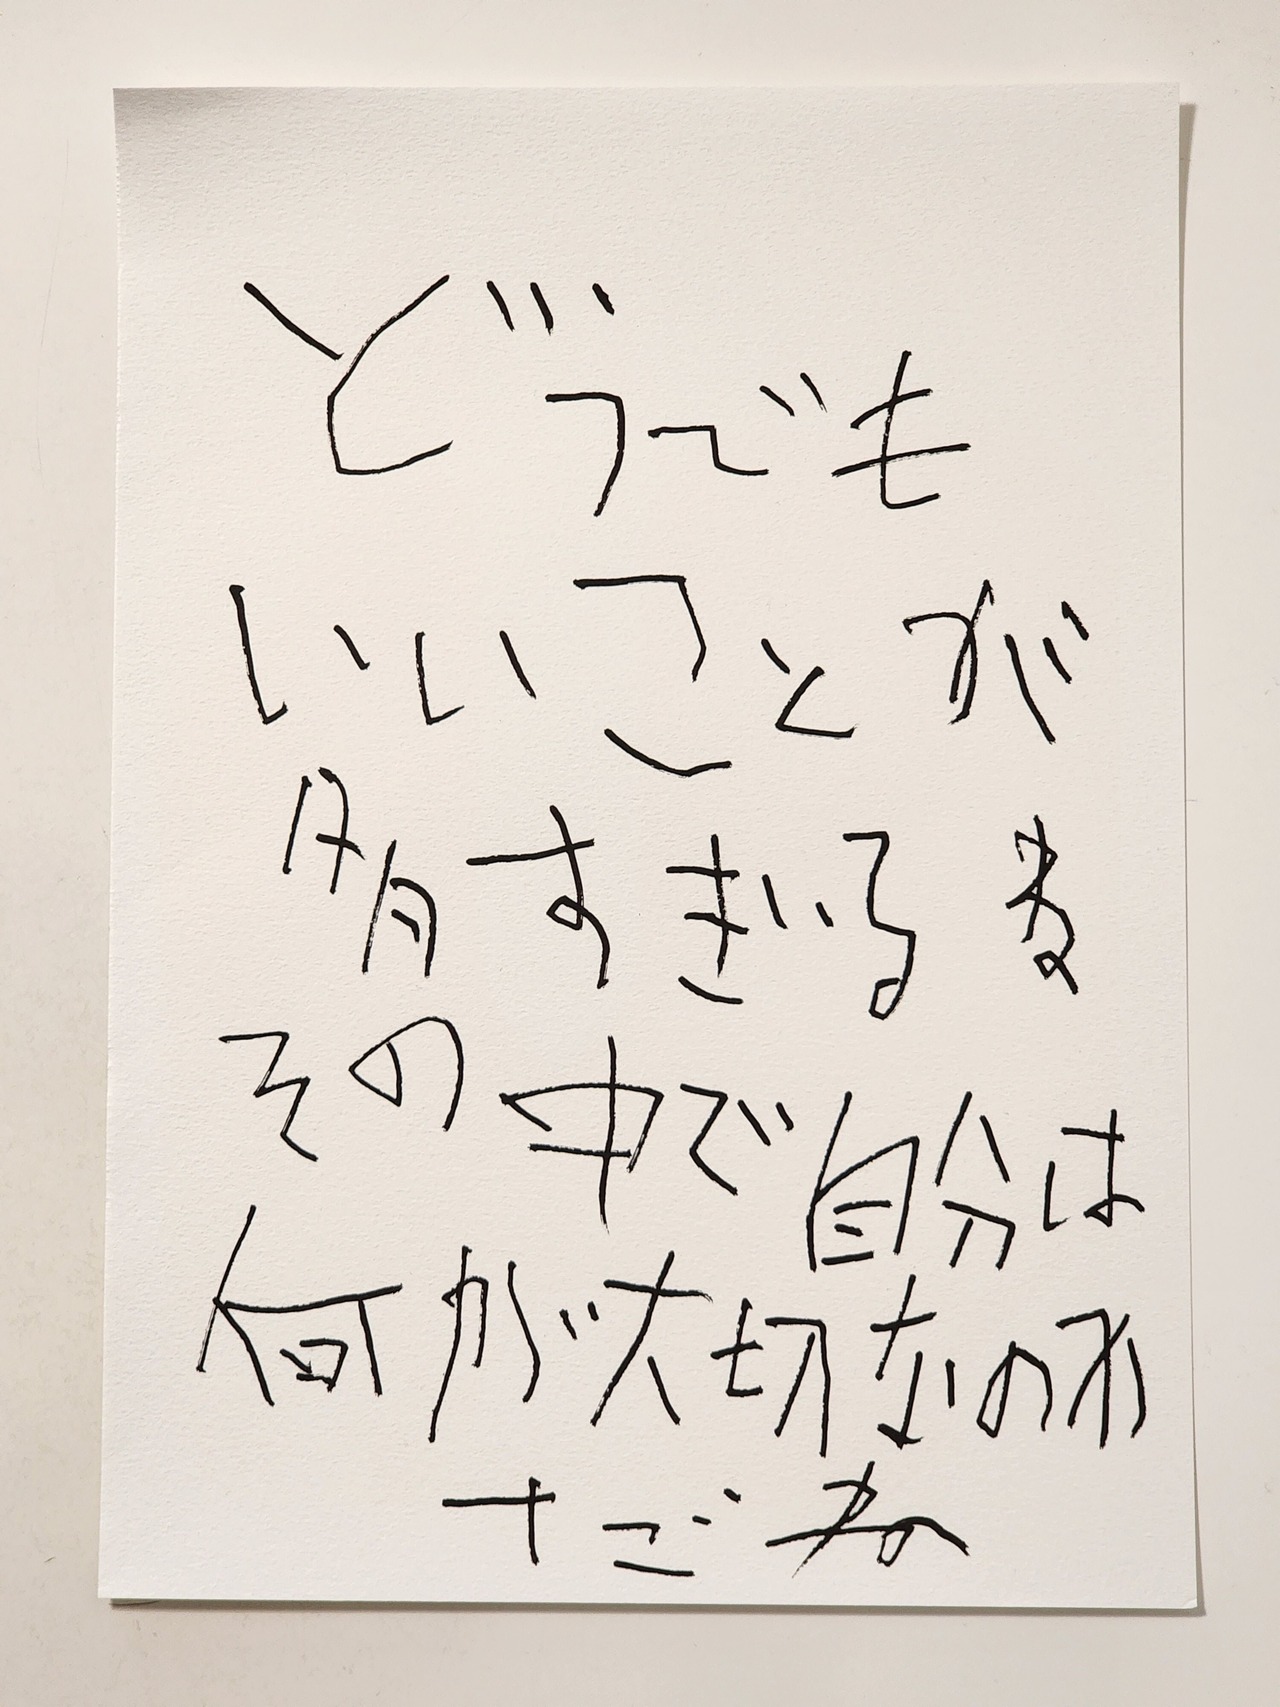 どうでも
いいことが
多すぎるま
その中で自分は
何が大切なのか